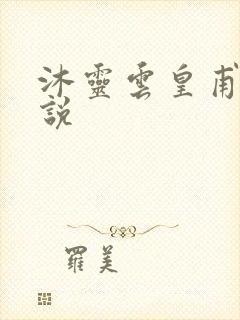 沐靈雲皇甫
說
羅美